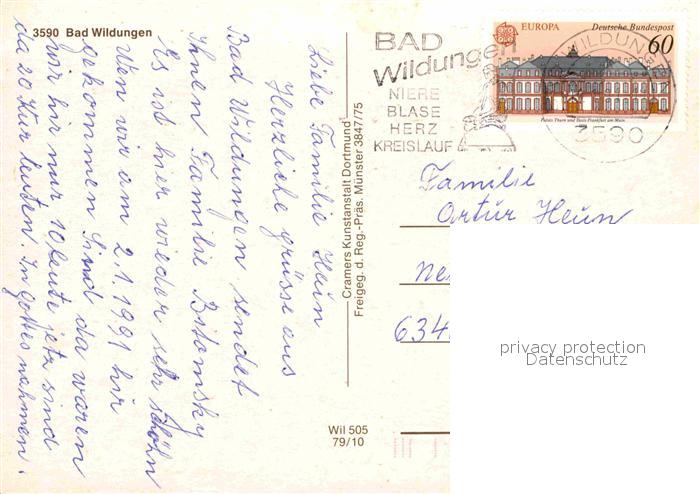 3590 Bad Wildungen
Liebe Familie Heün
Herzliche grüsse aus
Bad Wildungen sendet
Ihnen Familie Bitomsky
Es ist hier wieder sehr schöhn
Wen wir am 2.1.1991 hir
gekommen Sind da waren
wir hir nur 10 leute jetz sind
da 20 Kur leuten. In Gottes nahmen.
Cramers Kunstanstalt Dortmund
Freigeg. d. Reg.-Präs. Münster 3847/75
Wil 505
79/10
BAD
Wildungen
NIERE
BLASE
HERZ
KREISLAUF
EUROPA Deutsche Bundespost
60
Palais Thurn und Taxis Frankfurt am Main
WILDUN
3590
Familie
Artür Heün
634
privacy protection
Datenschutz